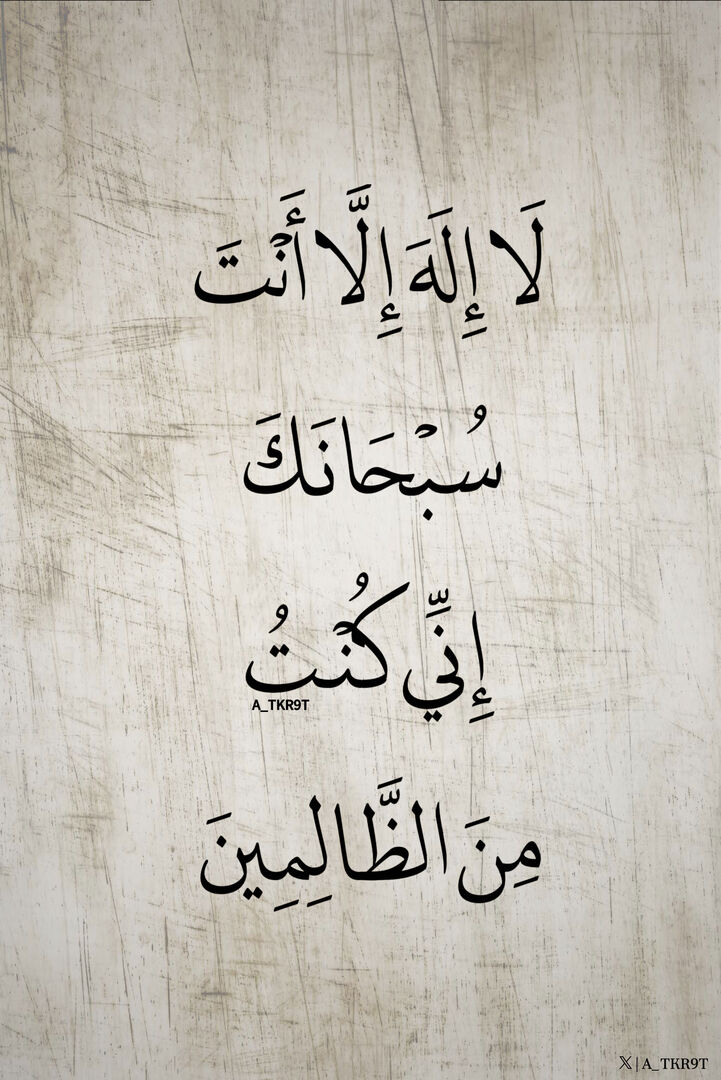 لَا إِلَهَ إِلَّا أَنْتَ
سُبْحَانَكَ
إِنِّي كُنْتُ
A_TKR9T
مِنَ الظَّالِمِينَ
𝕏 | A_TKR9T